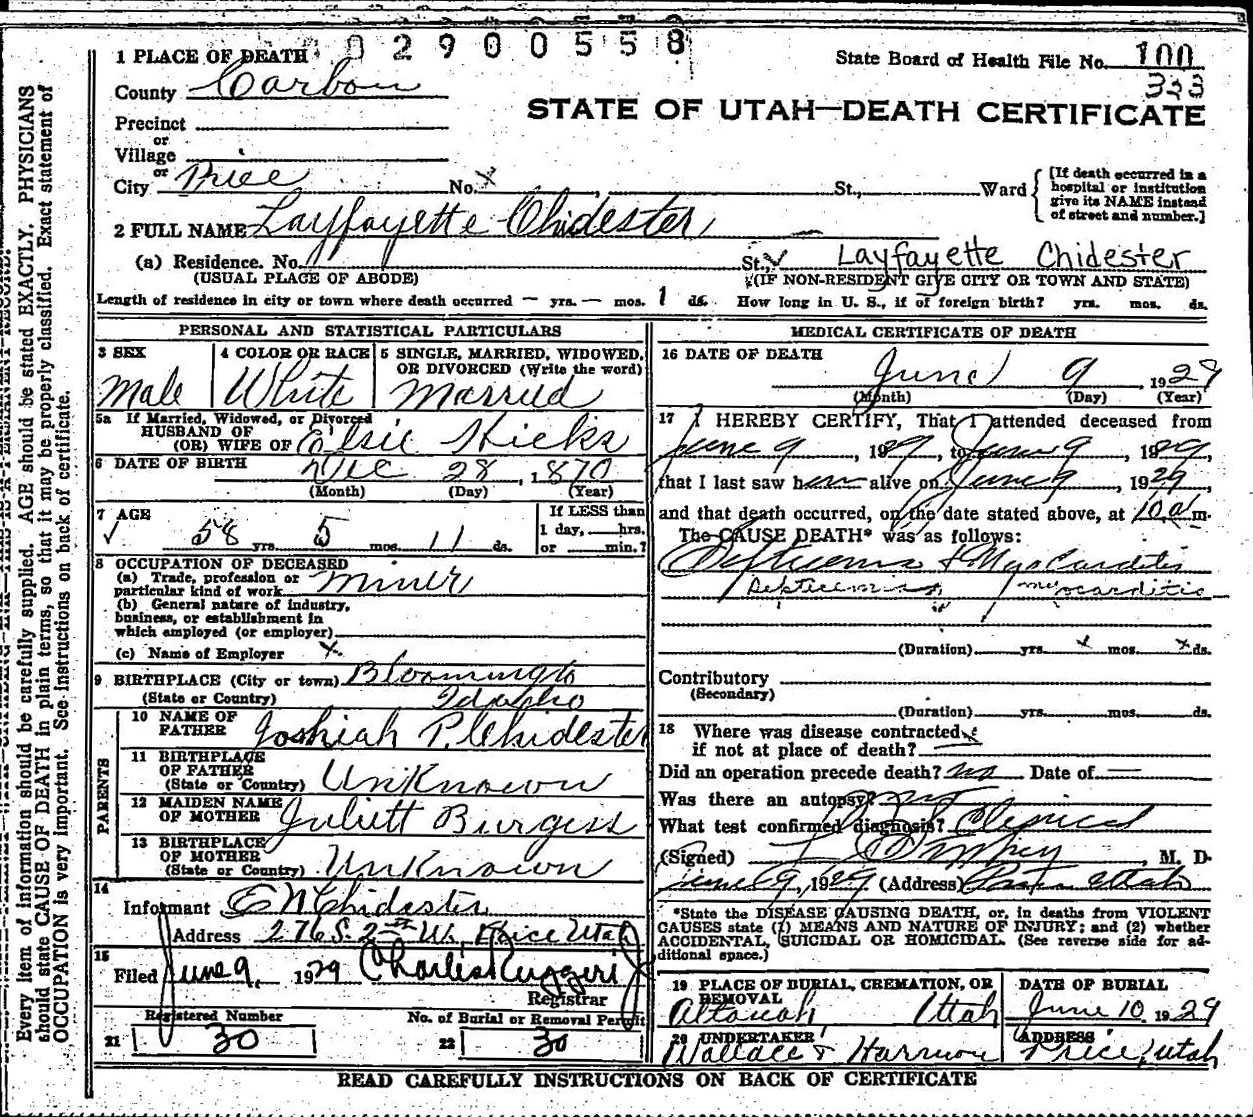 02900558
1 PLACE OF DEATH
State Board of Health File No. 100
333
County Carbon
STATE OF UTAH—DEATH CERTIFICATE
Precinct
or
Village
or
City Price No. x St., Ward
[If death occurred in a
hospital or institution
give its NAME instead
of street and number.]
2 FULL NAME Layffayette Chidester
(a) Residence. No. St., Layfayette Chidester
(USUAL PLACE OF ABODE) (IF NON-RESIDENT GIVE CITY OR TOWN AND STATE)
Length of residence in city or town where death occurred — yrs. — mos. 1 ds. How long in U. S., if of foreign birth? yrs. mos. ds.
PERSONAL AND STATISTICAL PARTICULARS
3 SEX Male
4 COLOR OR RACE White
5 SINGLE, MARRIED, WIDOWED,
OR DIVORCED (Write the word)
Married
5a If Married, Widowed, or Divorced
HUSBAND OF
(OR) WIFE OF Elsie Hicks
6 DATE OF BIRTH Dec 28, 1870
(Month) (Day) (Year)
7 AGE 58 yrs. 5 mos. 11 ds.
If LESS than
1 day, hrs.
or min.?
8 OCCUPATION OF DECEASED
(a) Trade, profession or
particular kind of work miner
(b) General nature of industry,
business, or establishment in
which employed (or employer)
(c) Name of Employer x
9 BIRTHPLACE (City or town) Bloomington
(State or Country) Idaho
PARENTS
10 NAME OF
FATHER Joshiah P. Chidester
11 BIRTHPLACE
OF FATHER
(State or Country) Unknown
12 MAIDEN NAME
OF MOTHER Juliett Burgess
13 BIRTHPLACE
OF MOTHER
(State or Country) Unknown
14
Informant E N Chidester
Address 276 S. 2nd W. Price Utah
15
Filed June 9, 1929 Charles Ruggeri Jr
Registrar
Registered Number
21 30
No. of Burial or Removal Permit
22 30
MEDICAL CERTIFICATE OF DEATH
16 DATE OF DEATH
June 9, 1929
(Month) (Day) (Year)
17 I HEREBY CERTIFY, That I attended deceased from
June 9, 1929, to June 9, 1929,
that I last saw him alive on June 9, 1929,
and that death occurred, on the date stated above, at 10 a m.
The CAUSE DEATH* was as follows:
Septicemia + Myocarditis
Septicemia, myocarditis
(Duration) yrs. x mos. x ds.
Contributory
(Secondary)
(Duration) yrs. mos. ds.
18 Where was disease contracted x
if not at place of death?
Did an operation precede death? no Date of —
Was there an autopsy?
What test confirmed diagnosis? Clinical
(Signed) , M. D.
June 9, 1929 (Address) Utah
*State the DISEASE CAUSING DEATH, or, in deaths from VIOLENT
CAUSES state (1) MEANS AND NATURE OF INJURY; and (2) whether
ACCIDENTAL, SUICIDAL OR HOMICIDAL. (See reverse side for ad-
ditional space.)
19 PLACE OF BURIAL, CREMATION, OR
REMOVAL
Altonah, Utah
DATE OF BURIAL
June 10 1929
20 UNDERTAKER
Wallace & Harmon
ADDRESS
Price, Utah
READ CAREFULLY INSTRUCTIONS ON BACK OF CERTIFICATE
Every item of information should be carefully supplied. AGE should be stated EXACTLY. PHYSICIANS
should state CAUSE OF DEATH in plain terms, so that it may be properly classified. Exact statement of
OCCUPATION is very important. See instructions on back of certificate.